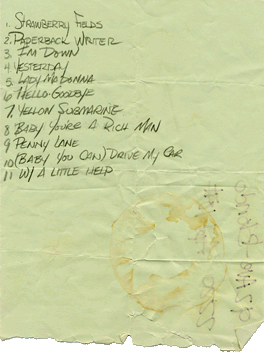 1. STRAWBERRY FIELDS
2. PAPERBACK WRITER
3. I'M DOWN
4 YESTERDAY
5. LADY MADONNA
6 HELLO-GOODBYE
7. YELLOW SUBMARINE
8 BABY YOU'RE A RICH MAN
9 PENNY LANE
10 (BABY YOU CAN) DRIVE MY CAR
11 W/ A LITTLE HELP